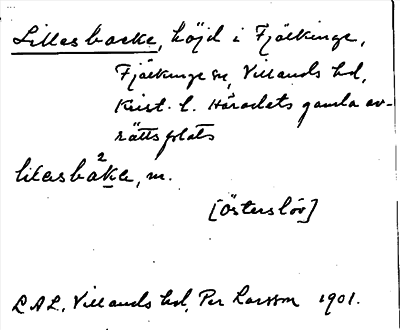 Lillesbacke, höjd i Fjälkinge,
Fjälkinge sn, Villands hd,
Krist. l. Häradets gamla av-
rättsplats
lilesbak̲e, m.
2
[Österslöv]
L.A.L. Villands hd, Per Larsson 1901.